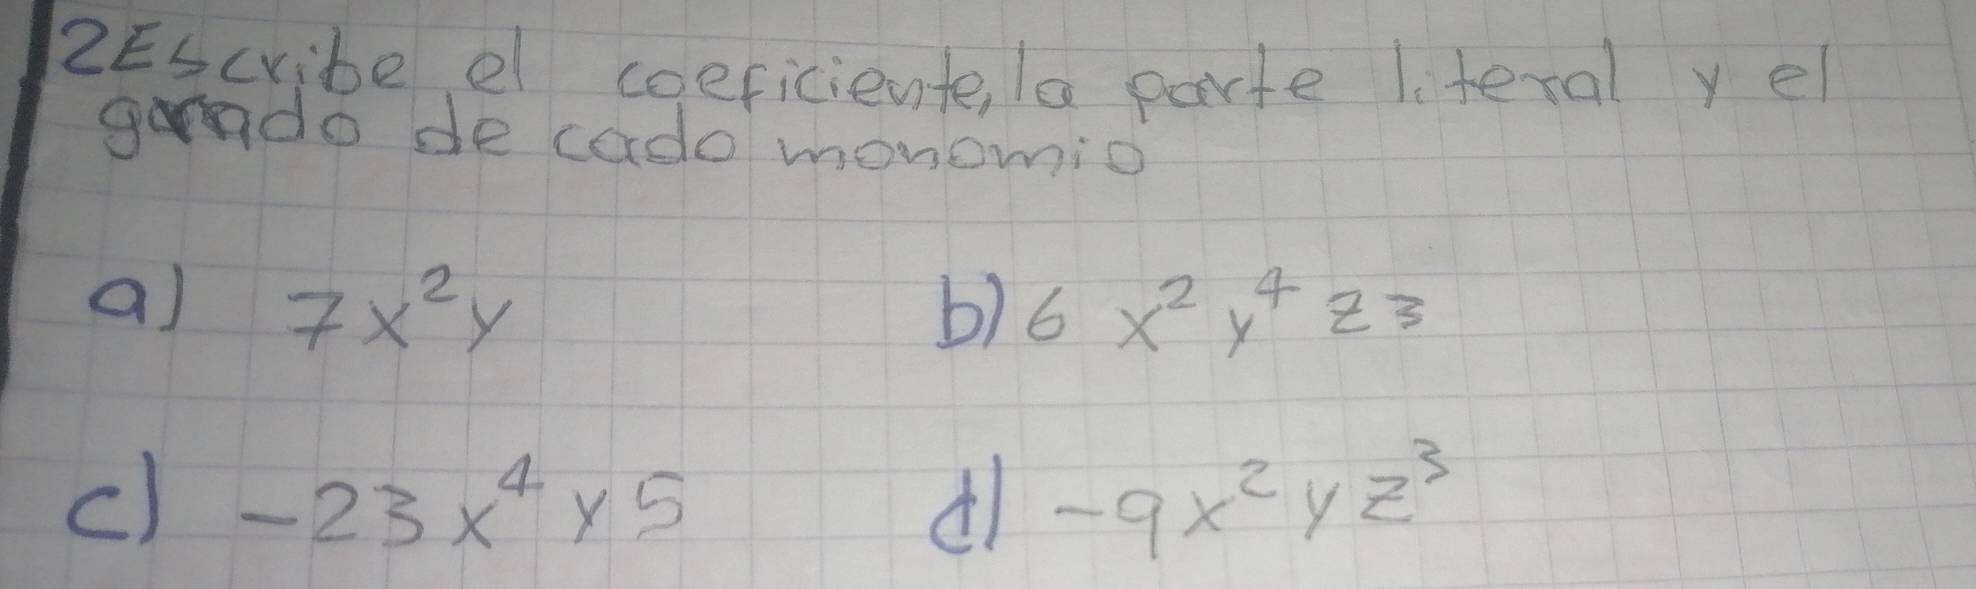 2Escribe el coeficiente, la parte literal y el
grado de cado monomio
a) 7x²y b) 6 x² y⁴ z3
c) -23x⁴ y5 d) -9x² y z³